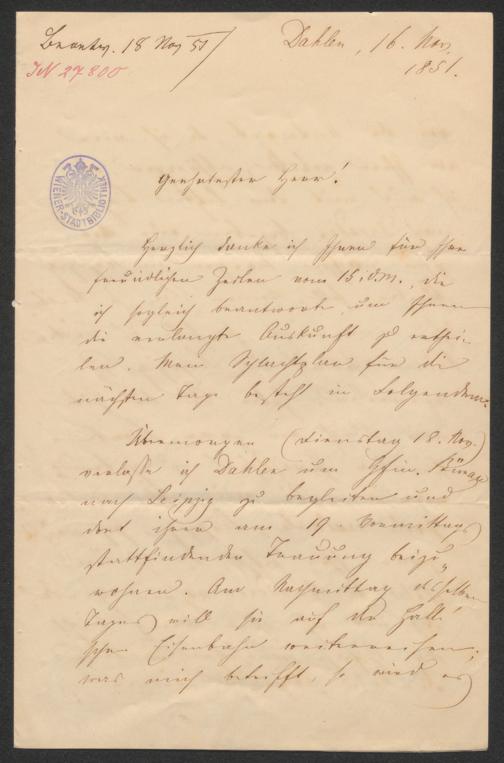 Beantw. 18 Nov 51
Dahlen, 16. Nov.
IN 27800
1851.
WIENER-STADTBIBLIOTHEK
Geehrtester Herr!
Herzlich danke ich Ihnen für Ihre
freundlichen Zeilen vom 15. d.M., die
ich sogleich beantworte, um Ihnen
die verlangte Auskunft zu erthei-
len. Mein Schlachtplan für die
nächsten Tage besteht in Folgendem:
Übermorgen (Dienstag 18. Nov.)
verlasse ich Dahlen um
nach Leipzig zu begleiten und
dort ihrer am 19. Vormittags
stattfindenden Trauung beizu-
wohnen. Am Nachmittag desselben
Tages will sie auf der Halli-
schen Eisenbahn weiterreisen;
was mich betrifft, so wird es